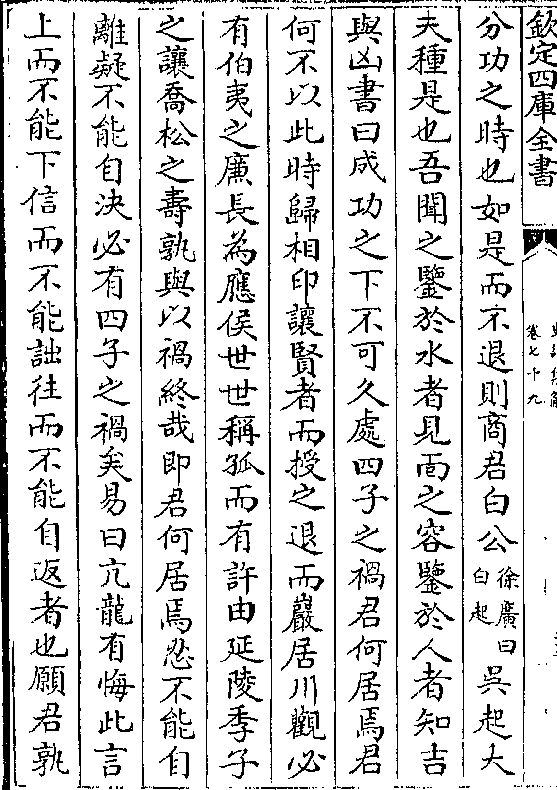 欽定四庫全書
卷七十九
分功之時也如是而不退則商君白公徐廣曰白起吳起大
夫種是也吾聞之鑒於水者見面之容鑒於人者知吉
與凶書曰成功之下不可久處四子之禍君何居焉君
何不以此時歸相印讓賢者而授之退而巖居川觀必
有伯夷之廉長為應侯世世稱孤而有許由延陵季子
之讓喬松之壽孰與以禍終哉即君何居焉忍不能自
離疑不能自決必有四子之禍矣易曰亢龍有悔此言
上而不能下信而不能詘往而不能自返者也願君孰